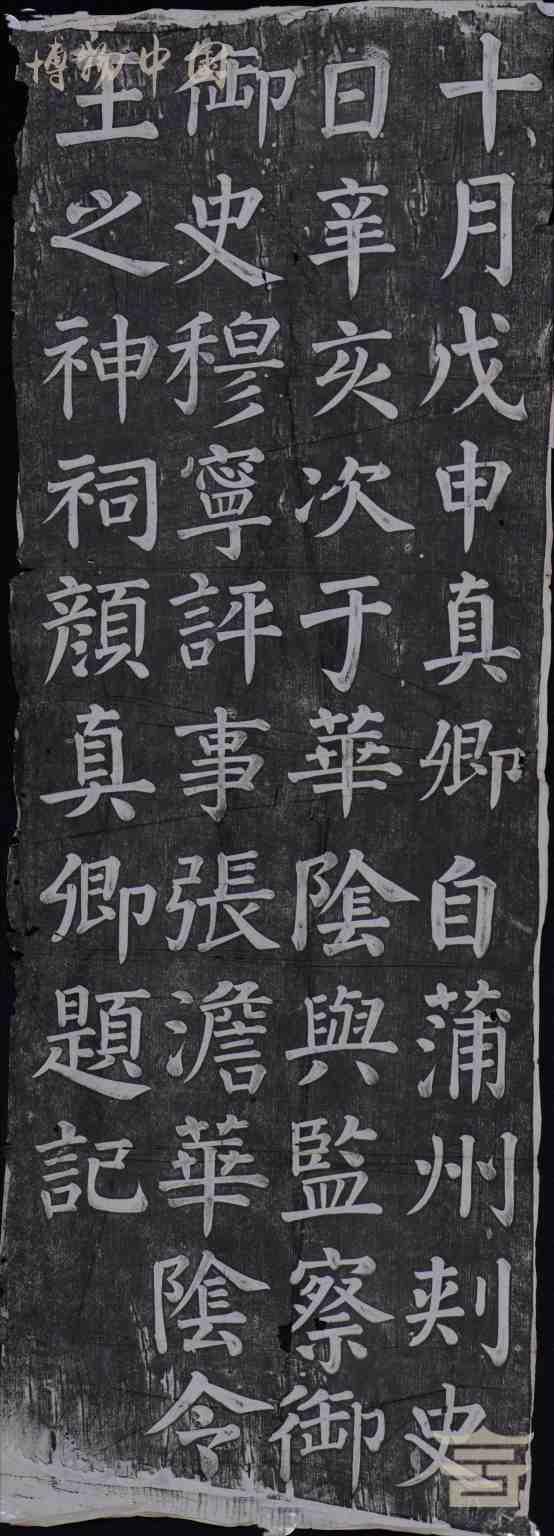 十月戊申真卿自蒲州刾史
日辛亥次于華隂與監察御
御史穆寧評事張澹華隂令
王之神祠顔真卿題記
博物中